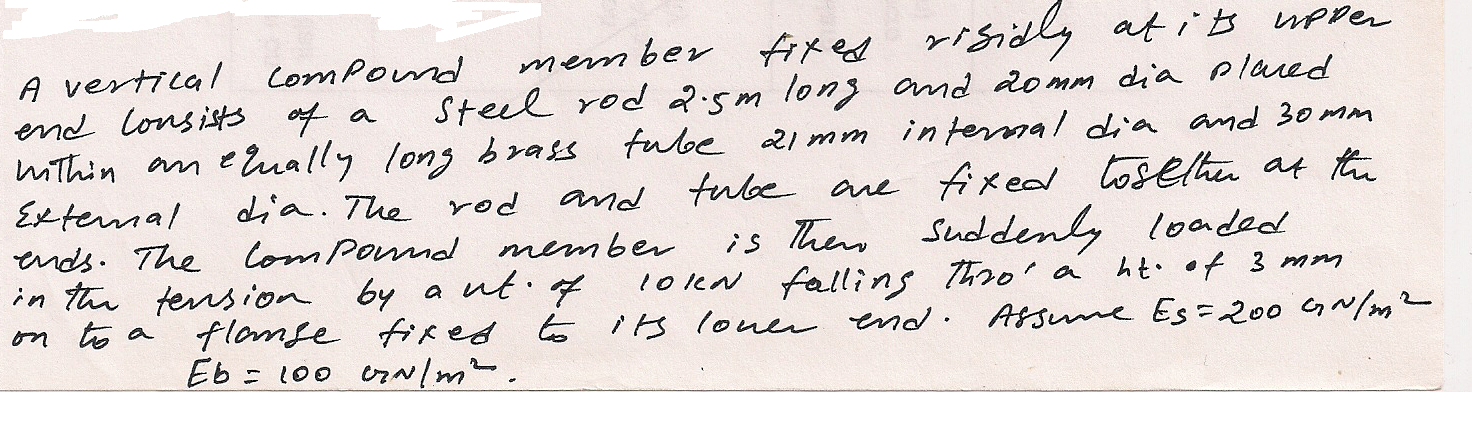 A vertical compound member fixed rigidly at its upper
end consists of a steel rod 2.5m long and 20mm dia placed
within an equally long brass tube 21mm internal dia and 30mm
External dia. The rod and tube are fixed together at the
ends. The compound member is then suddenly loaded
in the tension by a wt. of 10kN falling thro' a ht. of 3mm
on to a flange fixed to its lower end. Assume Es=200 GN/m²
Eb = 100 GN/m².